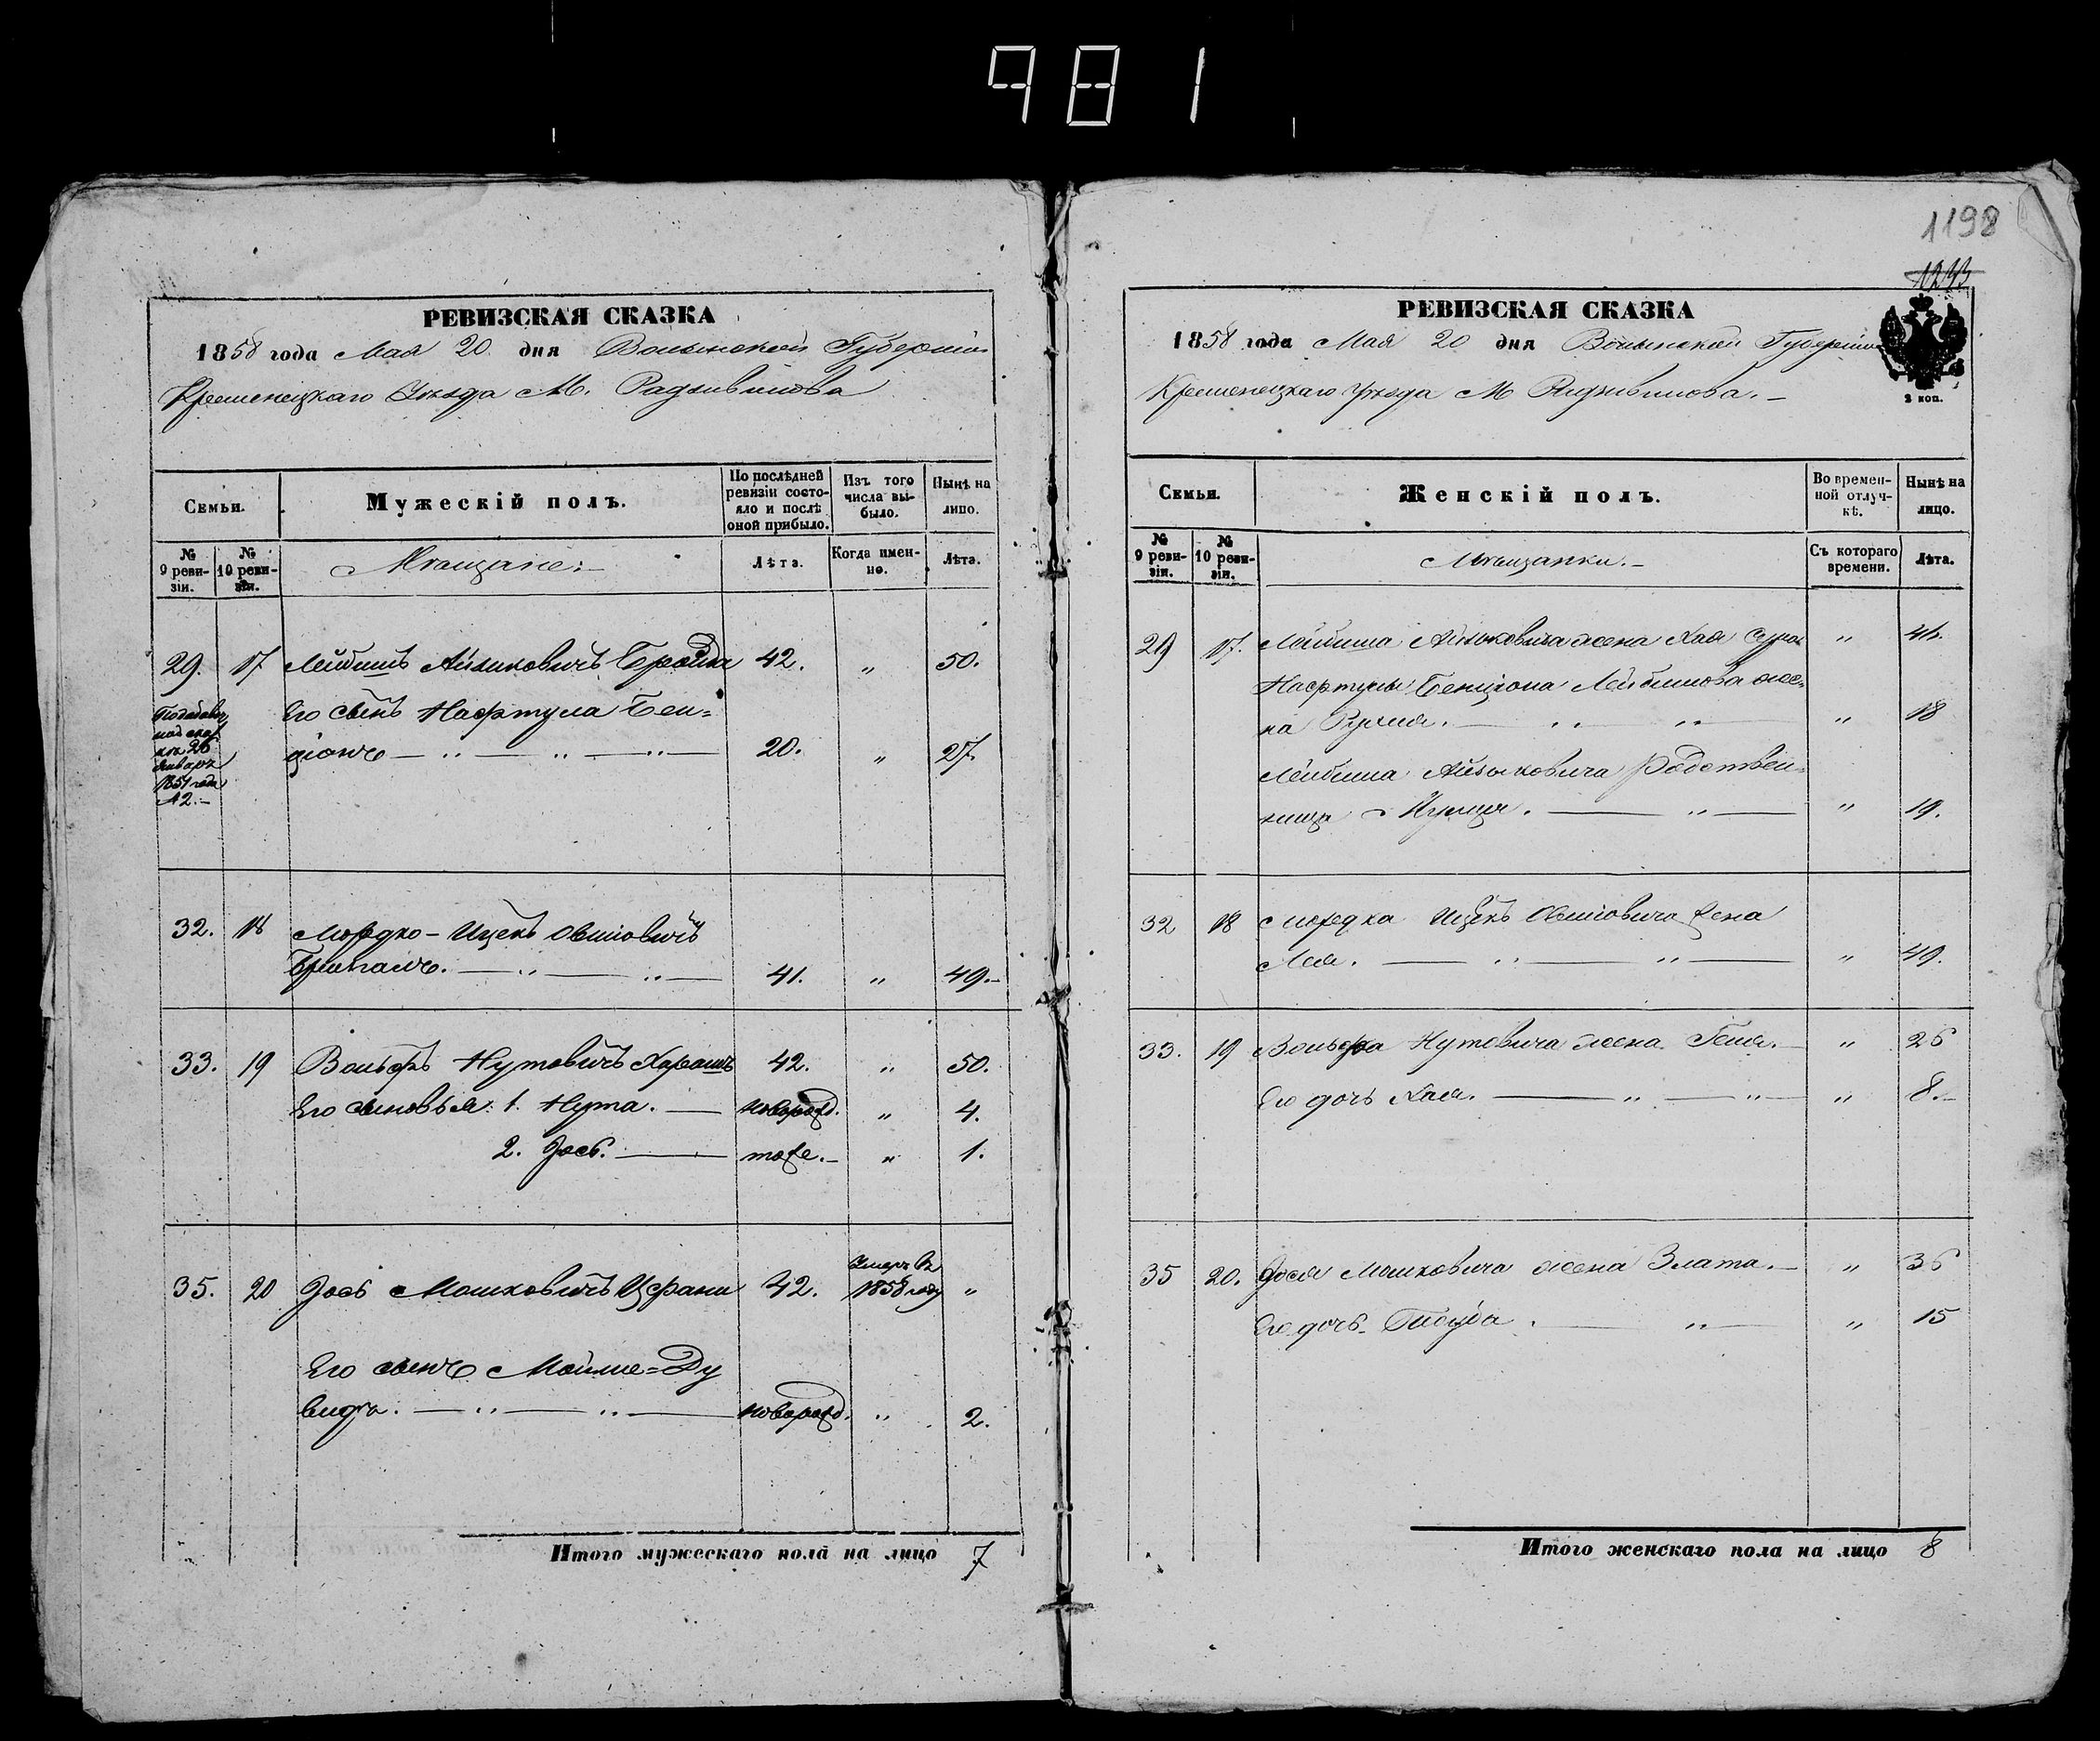 981
1198
РЕВИЗСКАЯ СКАЗКА
1858 года Мая 20 дня Волынской Губерніи
Кременецкаго Уѣзда М. Радзивилова
Семьи.
Мужескій полъ.
По послѣдней ревизіи состояло и послѣ оной прибыло.
Изъ того числа выбыло.
Нынѣ на лицо.
№ 9 ревизіи.
№ 10 ревизіи.
Мѣщане:
Лѣта.
Когда именно.
Лѣта.
29. 17 Лейбишъ Айзиковичъ Бройда 42. " 50.
Его сынъ Нафтула Бен=
ціонъ — " — " — " — 20. " 27.
26
1851 года
№ 2.
32. 18 Мордко-Ицекъ Овшіовичъ
— " — " — 41. " 49.
33. 19 Вольфъ Нутовичъ Харашъ 42. " 50.
Его сыновья: 1. Нута. — новорожд. " 4.
2. Іось. — тоже. " 1.
35. 20 Іось Мошковичъ 42. Умеръ въ 1858 году "
Его сынъ Мойше=Ду
видъ. — " — " — новорожд. " 2.
Итого мужескаго пола на лицо 7
РЕВИЗСКАЯ СКАЗКА
1858 года Мая 20 дня Волынской Губерніи
Кременецкаго Уѣзда М Радзивилова.
2 коп.
Семьи.
Женскій полъ.
Во временной отлучкѣ.
Нынѣ на лицо.
№ 9 ревизіи.
№ 10 ревизіи.
Мѣщанки.
Съ котораго времени.
Лѣта.
29 17. Лейбиша Айзиковича жена Хая Сура "
Нафтулы Бенціона Лейбишова же=
на Рухля. — " " — " 18
Лейбиша Айзыковича Родствен=
ница — " — " 19.
32 18 Мордка Ицекъ Овшіовича жена
Лея. — " — " — " 49.
33. 19 Вольфа Нутовича жена Геня. — " 26
Его дочь Хая. — " — " — " 8.
35 20. Іося Мошковича жена Злата. — " 36
Его дочь Тауба. — " — " 15
Итого женскаго пола на лицо 8